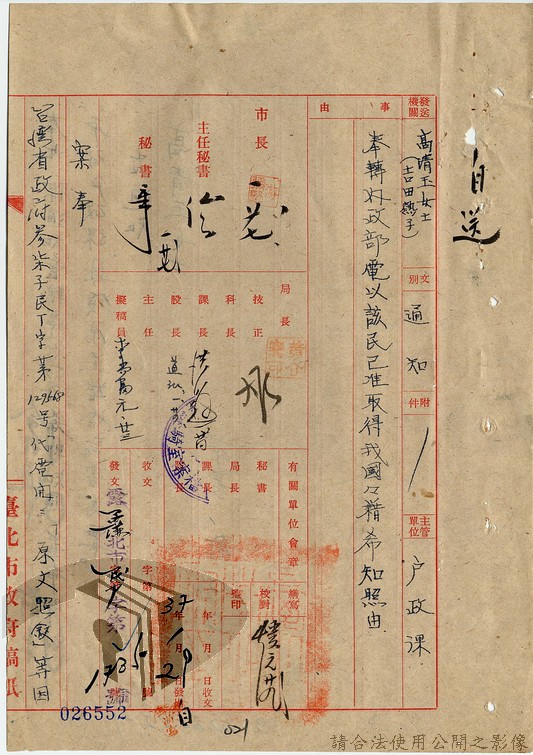 自送
發送機關
高清玉女士
(吉田熱子)
文別
通知
附件
主管單位
戶政課
事由
奉轉內政部電以該民已准取得我國々籍希知照由
市長
主任秘書
秘書
局長
技正
科長
課長
股長
主任
擬稿員
有關單位會章
秘書
局長
課長
股長
繕寫
校對
監印
收文
字第
號
年
月
日收文
發文
臺北市
民
字第
1735
號
37年1月29日發
檔案室
案奉
台灣省政府參柒子民丁字第
號代電開:「原文照敘」等因
臺北市政府稿紙
026552
021
請合法使用公開之影像